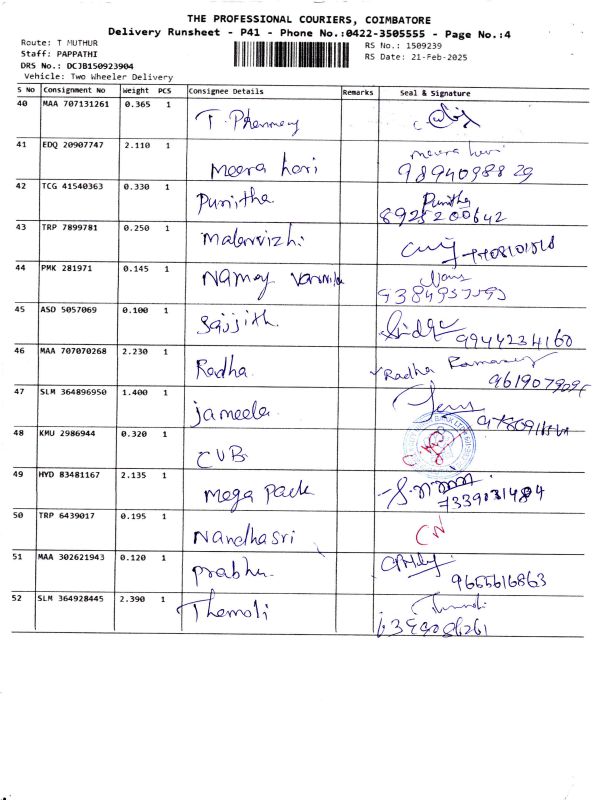 THE PROFESSIONAL COURIERS, COIMBATORE
Delivery Runsheet - P41 - Phone No.:0422-3505555 - Page No.:4
Route: T MUTHUR
RS No.: 1509239
Staff: PAPPATHI
RS Date: 21-Feb-2025
DRS No.: DCJB150923904
Vehicle: Two Wheeler Delivery
S No Consignment No Weight PCS Consignee Details Remarks Seal & Signature
40 MAA 707131261 0.365 1 T. Pharmacy
41 EDQ 20907747 2.110 1 Meera hari meera hari
9894098829
42 TCG 41540363 0.330 1 Punitha Punitha
8925200642
43 TRP 7899781 0.250 1 Malarvizhi
44 PMK 281971 0.145 1
45 ASD 5057069 0.100 1 Sajjith 9944234160
46 MAA 707070268 2.230 1 Radha Radha
47 SLM 364896950 1.400 1 jameela
48 KMU 2986944 0.320 1 CUB
49 HYD 83481167 2.135 1 Mega pack
7339031484
50 TRP 6439017 0.195 1 Nandhasri CN
51 MAA 302621943 0.120 1 prabhu
9655616863
52 SLM 364928445 2.390 1 Themoli